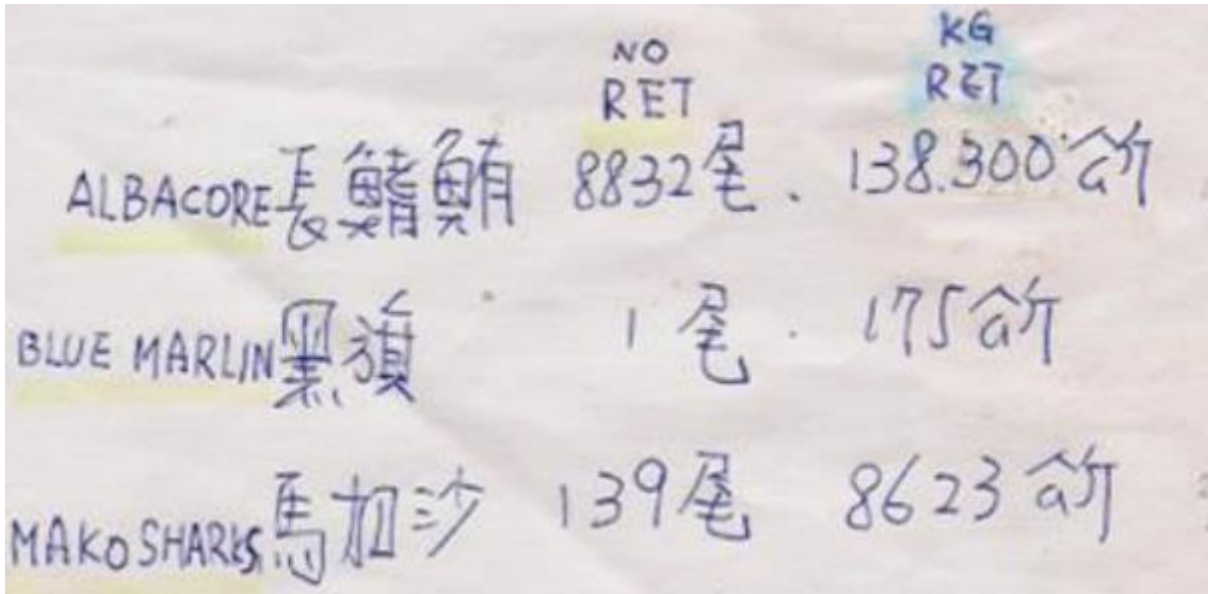 NO KG
RET RET
ALBACORE長鰭鮪 8832尾. 138.300公斤
BLUE MARLIN黑旗 1尾. 175公斤
MAKO SHARKS馬加沙 139尾 8623公斤